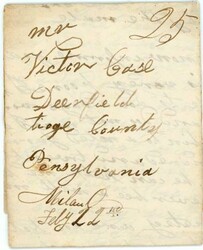 mr 25
Victor Case
Deerfield
tioge County
Pensylvania
Milan O
July 22nd